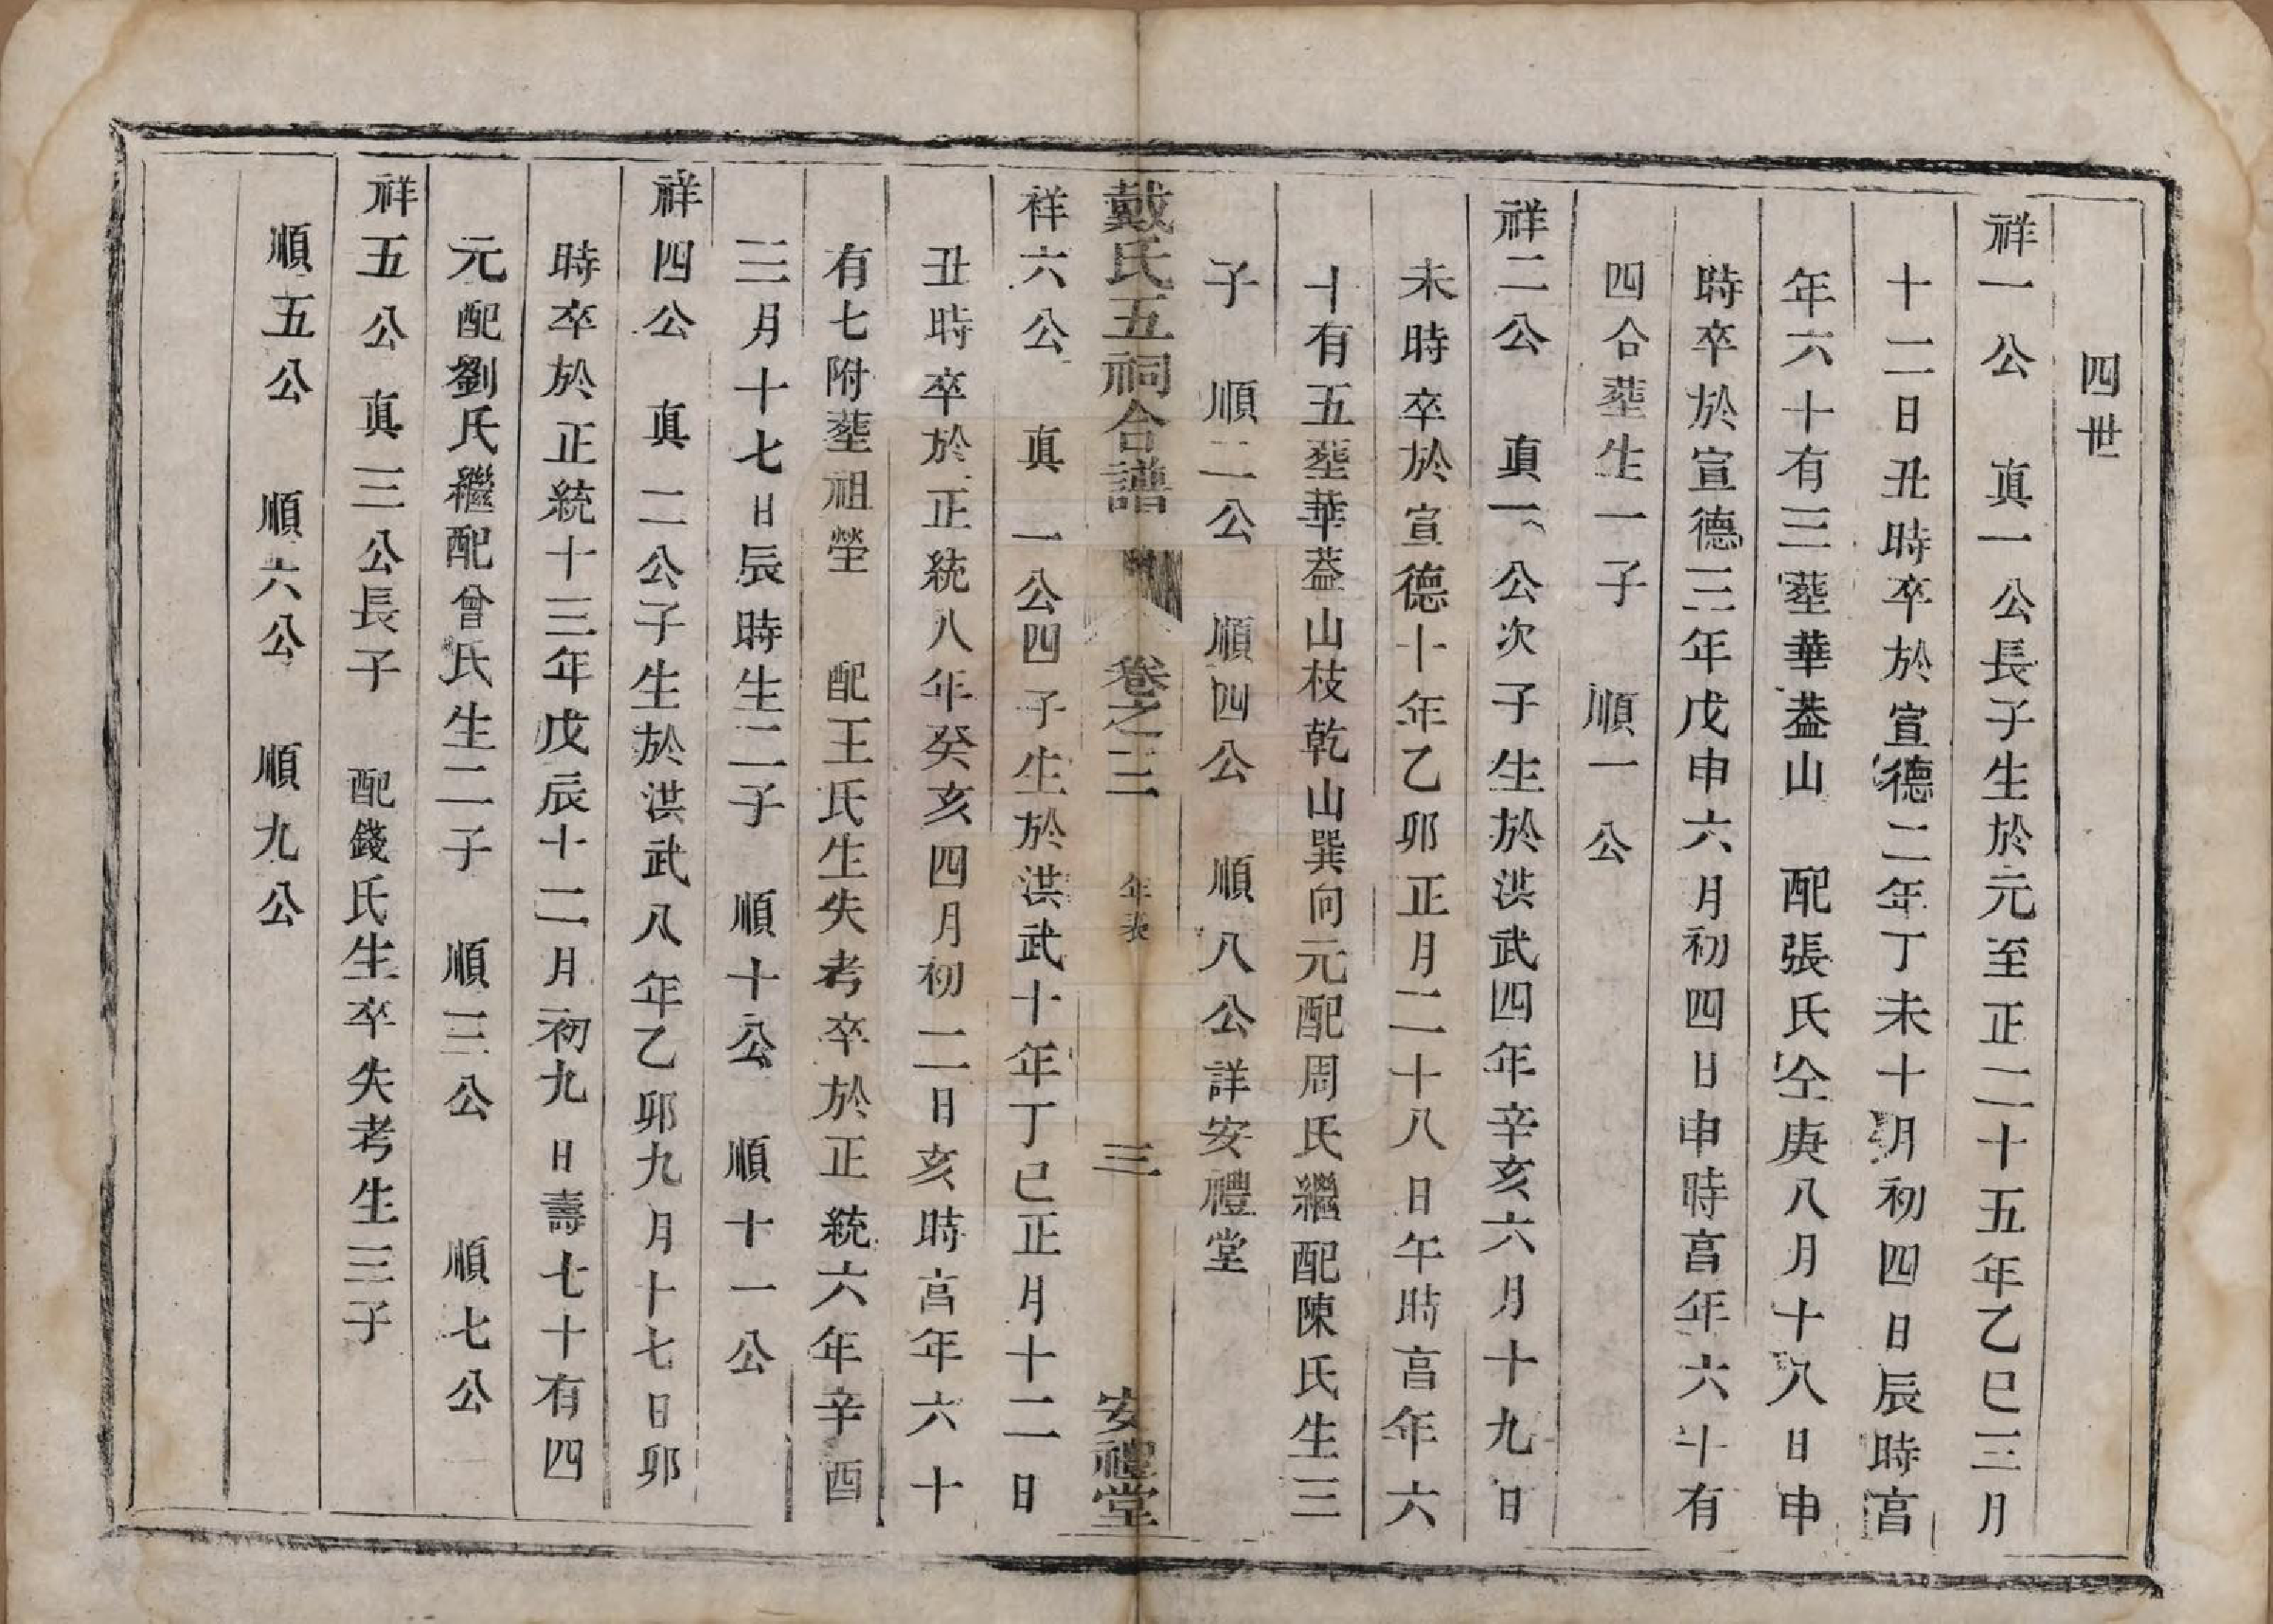 四世
祥一公　真一公長子生於元至正二十五年乙巳三月
十二日丑時卒於宣德二年丁未十月初四日辰時亯
年六十有三塟華葢山　配張氏仝庚八月十八日申
時卒於宣德三年戊申六月初四日申時亯年六十有
四合塟生一子　順一公
祥二公　真一公次子生於洪武四年辛亥六月十九日
未時卒於宣德十年乙卯正月二十八日午時亯年六
十有五塟華葢山枝乾山巽向元配周氏繼配陳氏生三
子　順二公　順四公　順八公詳安禮堂
戴氏五祠合譜　卷之三　年表　三　安禮堂
祥六公　真一公四子生於洪武十年丁巳正月十二日
丑時卒於正統八年癸亥四月初二日亥時亯年六十
有七附塟祖塋　配王氏生失考卒於正統六年辛酉
三月十七日辰時生二子　順十公　順十一公
祥四公　真二公子生於洪武八年乙卯九月十七日卯
時卒於正統十三年戊辰十二月初九日壽七十有四
元配劉氏繼配曾氏生二子　順三公　順七公
祥五公　真三公長子　配錢氏生卒失考生三子
順五公　順六公　順九公